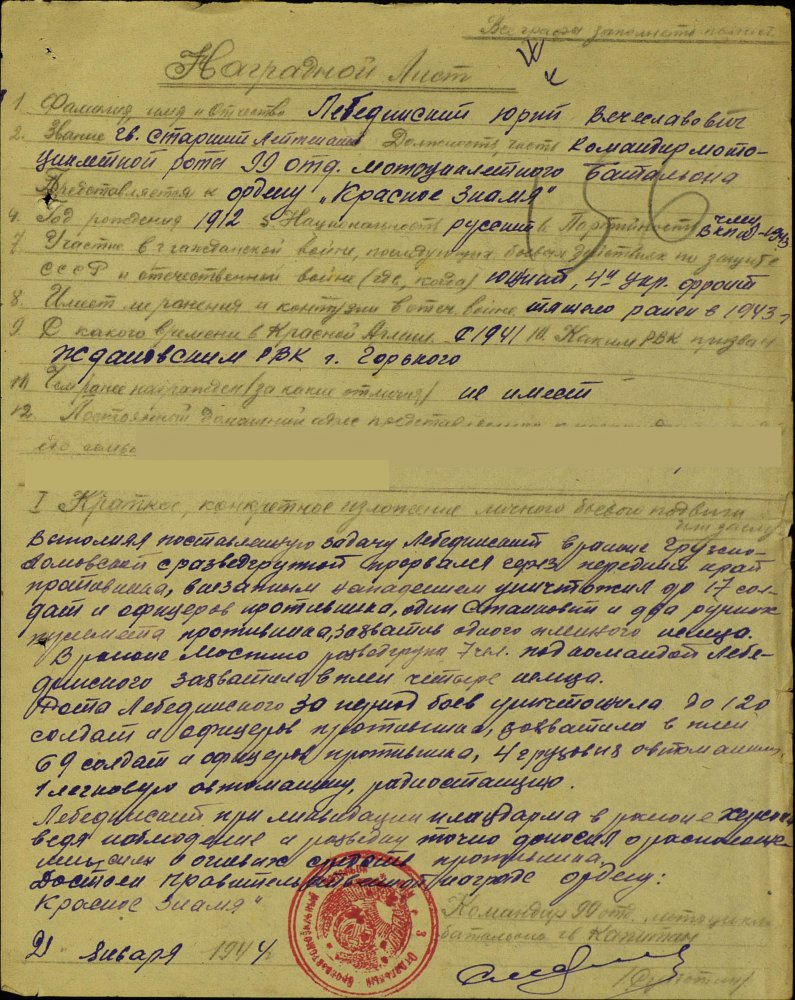 Все графы заполнять полност.
Наградной Лист
1 Фамилия имя и Отчество Лебединский Юрий Вечеславович
2. Звание гв. старший лейтенант Должность, часть Командир мото-
циклетной роты 99 отд. мотоциклетного батальона
Представляется к ордену „Красное Знамя"
4. Год рождения 1912 5. Национальность русский 6 Партийность член ВКП(б)-1943
7. Участие в гражданской войне, последующих боевых действиях по защите
СССР и отечественной войне (где, когда) южный, 4й укр. фронт
8. Имеет ли ранения и контузии в отеч. войне тяжело ранен в 1943 г
9. С какого времени в Красной Армии с 1941 10. Каким РВК призван
Ждановским РВК г. Горького
11. Чем ранее награжден (за какие отличия) не имеет
12. Постоянный домашний адрес представляемого к
его семьи
I Краткое, конкретное изложение личного боевого подвига
или заслуг
Выполняя поставленную задачу Лебединский в районе Грузско-
Ломовской с разведгруппой прорвался через передний край
противника, внезапным нападением уничтожил до 17 сол-
дат и офицеров противника, один станковый и два ручных
пулемета противника, захватив одного пленного немца.
В районе разведгруппа 7 чел. под командой Лебе-
динского захватила в плен четыре немца.
Рота Лебединского за период боев уничтожила до 120
солдат и офицеров противника, захватила в плен
69 солдат и офицеров противника, 4 грузовых автомашин,
1 легковую автомашину, радиостанцию.
Лебединский при ликвидации плацдарма в районе Херсон
ведя наблюдение и разведку точно доносил о расположе-
нии и огневых средств противника.
Достоен Правительственной награде ордену:
Красное Знамя"
Командир 99 отд. мотоцикл.
баталиона гв Капитан
21 Января 1944г.